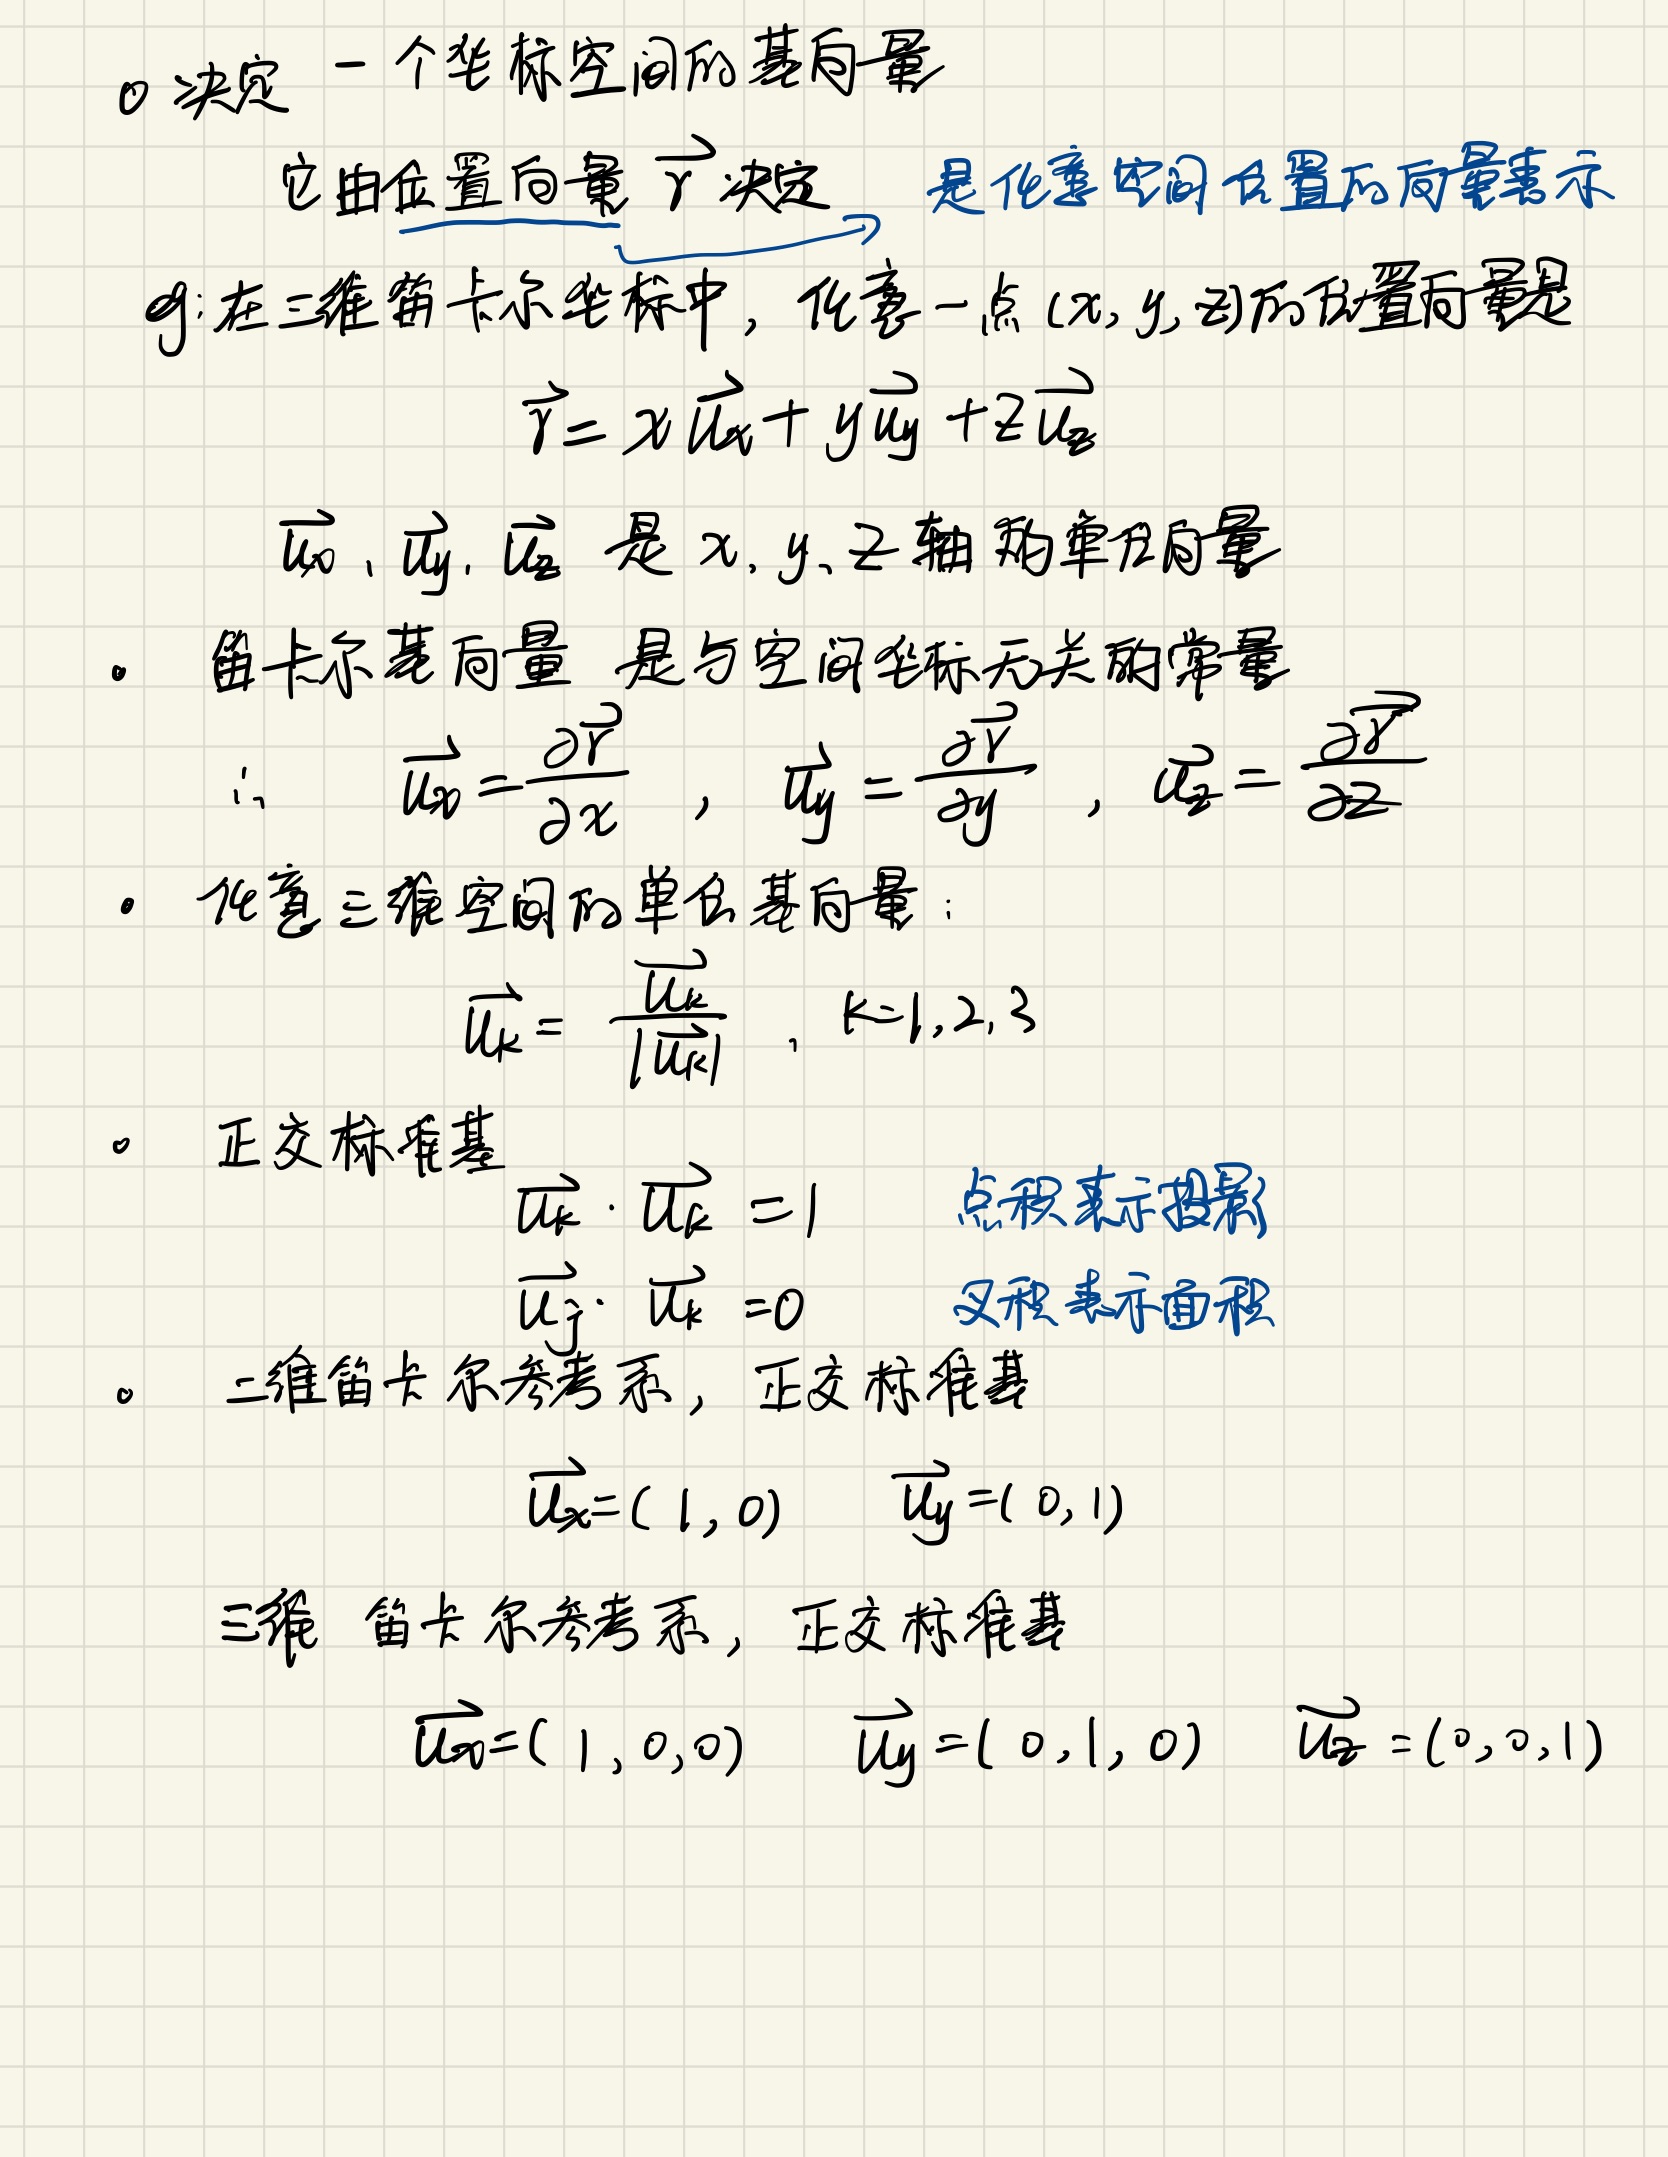 决定 一个坐标空间的基向量
它由位置向量 r⃗ 决定 是任意空间位置的向量表示
eg: 在三维笛卡尔坐标中, 任意一点 (x, y, z)的位置向量是
r⃗ = x u⃗x + y u⃗y + z u⃗z
u⃗x、u⃗y、u⃗z 是 x、y、z 轴的单位向量
• 笛卡尔基向量 是与空间坐标无关的常量
∴ u⃗x = ∂r⃗/∂x , u⃗y = ∂r⃗/∂y , u⃗z = ∂r⃗/∂z
• 任意三维空间的单位基向量:
u⃗k = u⃗k/|u⃗k| , k=1,2,3
• 正交标准基
u⃗k · u⃗k = 1 点积表示投影
u⃗j · u⃗k = 0 叉积表示面积
• 二维笛卡尔参考系, 正交标准基
u⃗x = (1, 0) u⃗y = (0, 1)
三维 笛卡尔参考系, 正交标准基
u⃗x = (1, 0, 0) u⃗y = (0, 1, 0) u⃗z = (0, 0, 1)